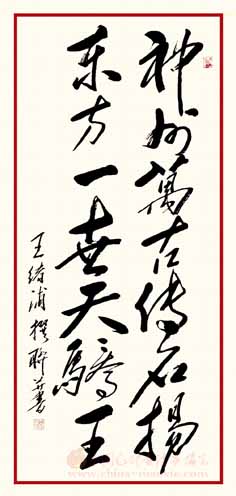 神州萬古傳名揚
东方一世天驕王
王浦撰聯并書